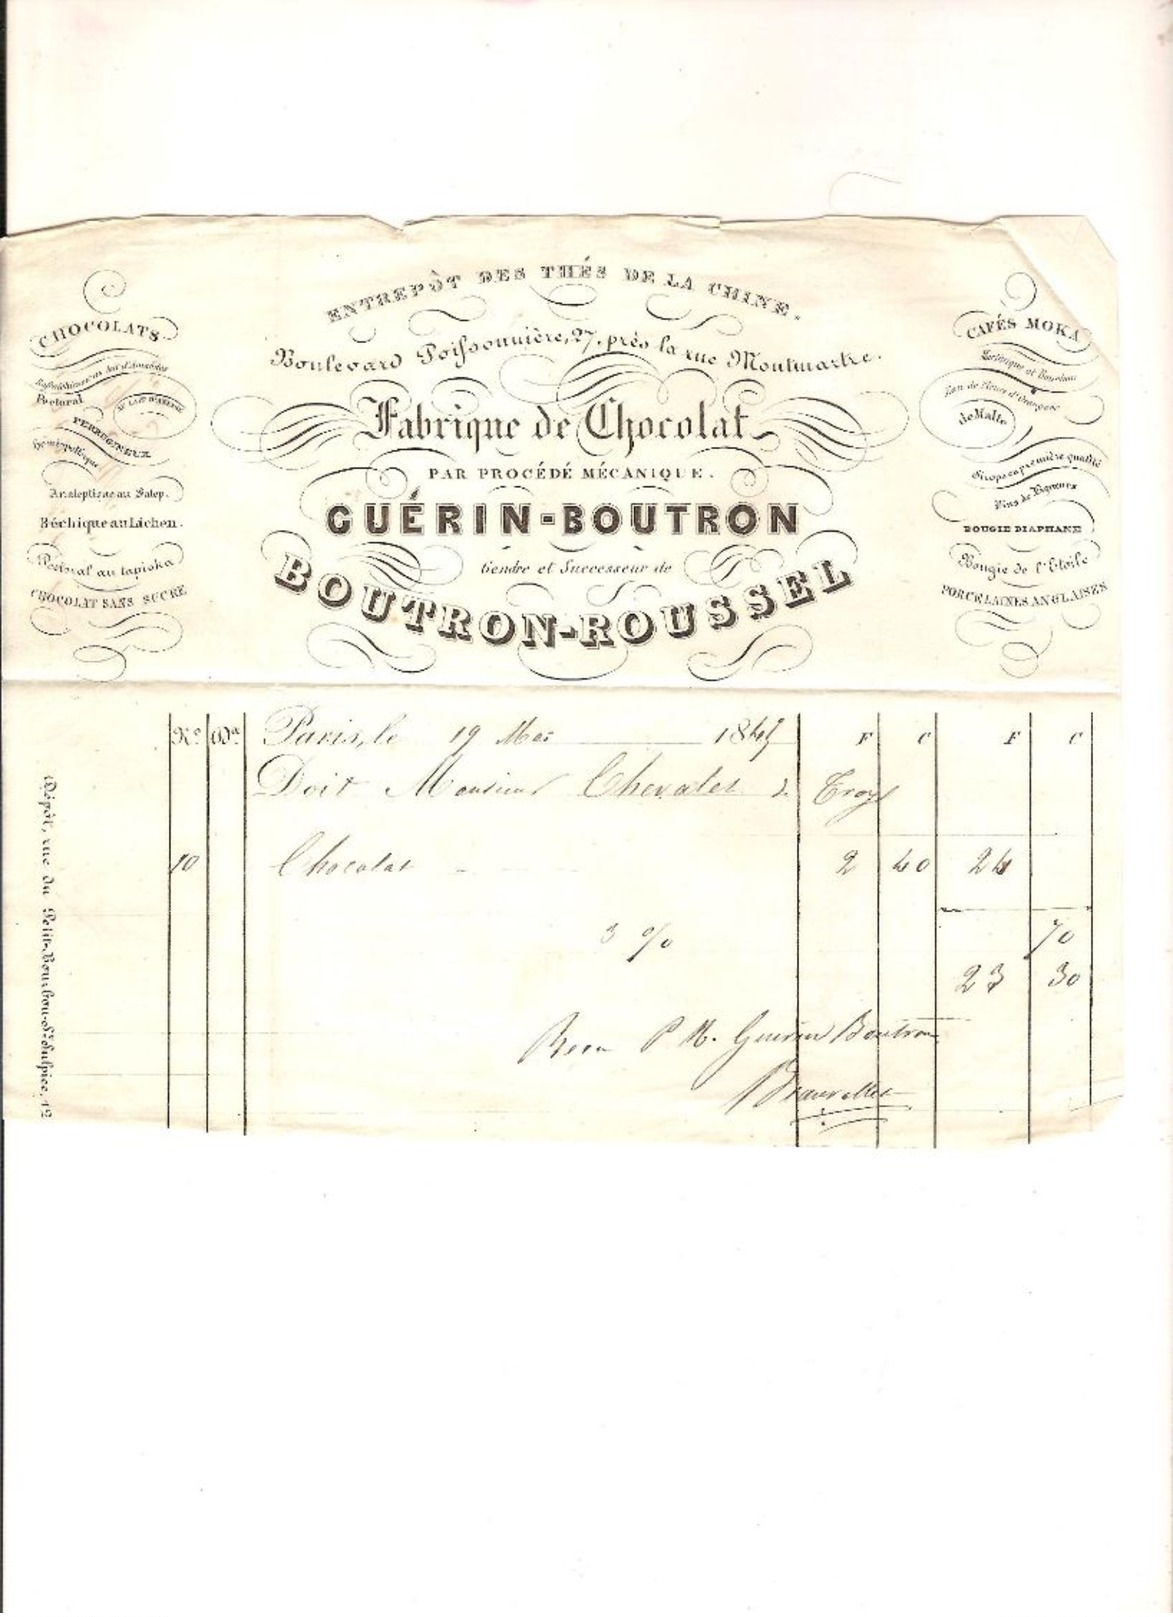 ENTREPÔT DES THÉS DE LA CHINE.
Boulevard Poissonnière, 27, près la rue Montmartre.
Fabrique de Chocolat
PAR PROCÉDÉ MÉCANIQUE.
GUÉRIN-BOUTRON
Gendre et Successeur de
BOUTRON-ROUSSEL
CHOCOLATS
Rafraîchissant au lait d'amandes
Pectoral
AU LAIT D'ANESSE
FERRUGINEUX
Homœopathique
Analeptique au Salep.
Béchique au Lichen.
Pectoral au tapioka
CHOCOLAT SANS SUCRE
CAFÉS MOKA
Martinique et Bourbon
Eau de Fleurs d'Oranger
de Malte
Sirops en première qualité
Vins de Liqueurs
BOUGIE DIAPHANE
Bougie de l'Etoile
PORCELAINES ANGLAISES
Dépôt, rue du Petit-Bourbon-St Sulpice, 12
Ko Da Paris, le 19 Mai 184 F C F C
Doit Monsieur Chevalet à Troyes
10 Chocolat 2 40 24
3 % 70
23 30
P M. Guérin Boutron